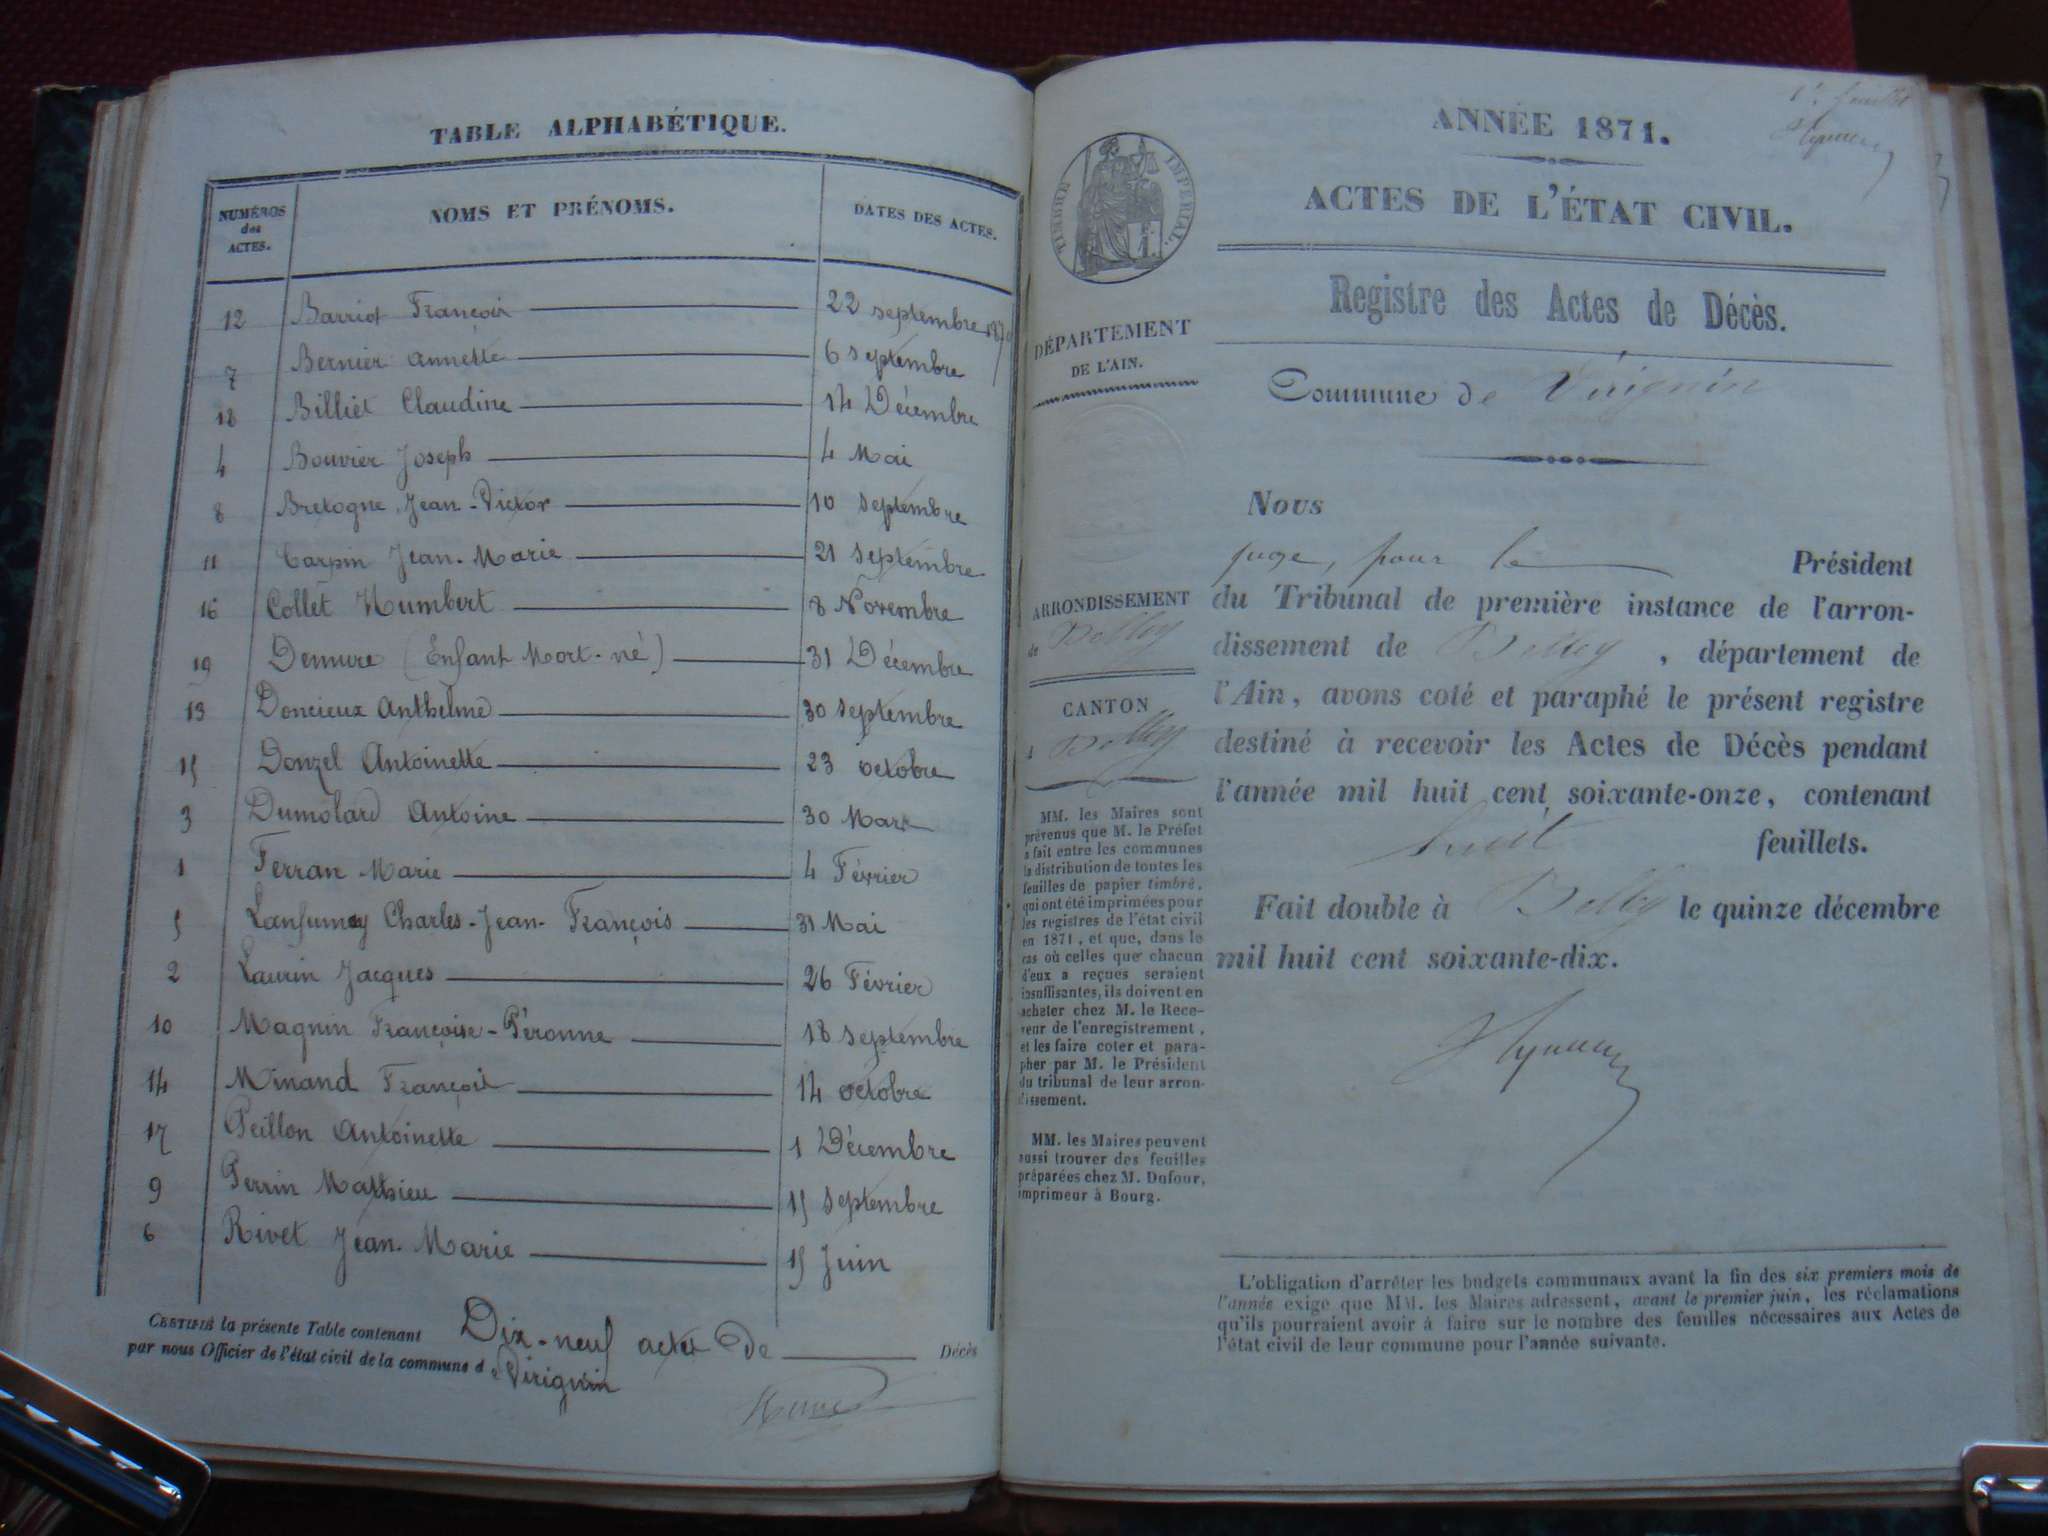 TABLE ALPHABÉTIQUE.
NUMÉROS
des
ACTES.
NOMS ET PRÉNOMS.
DATES DES ACTES.
12 Barriot François 22 septembre 1870
7 Bernier annette 6 septembre
18 Billiet Claudine 14 Décembre
4 Bouvier Joseph 4 Mai
8 Bretogne Jean-Victor 10 septembre
11 Carpin Jean-Marie 21 septembre
16 Collet Humbert 8 Novembre
19 Demure (Enfant Mort-né) 31 Décembre
13 Doncieux Anthelme 30 septembre
15 Donzel Antoinette 23 octobre
3 Dumolard Antoine 30 Mars
1 Ferran Marie 4 Février
5 Charles-Jean-François 31 Mai
2 Laurin Jacques 26 Février
10 Magnin Françoise-Péronne 18 septembre
14 Minand François 14 octobre
17 Peillon Antoinette 1 Décembre
9 Perrin Mathieu 15 septembre
6 Rivet Jean-Marie 15 Juin
CERTIFIÉ la présente Table contenant Dix-neuf actes de Décès
par nous Officier de l'état civil de la commune d e Virignin
TIMBRE IMPÉRIAL.
F.
1.
DÉPARTEMENT
DE L'AIN.
ARRONDISSEMENT
de Belley
CANTON
d Belley
MM. les Maires sont
prévenus que M. le Préfet
a fait entre les communes
la distribution de toutes les
feuilles de papier timbré,
qui ont été imprimées pour
les registres de l'état civil
en 1871, et que, dans le
cas où celles que chacun
d'eux a reçues seraient
insuffisantes, ils doivent en
acheter chez M. le Rece-
veur de l'enregistrement,
et les faire coter et para-
pher par M. le Président
du tribunal de leur arron-
dissement.
MM. les Maires peuvent
aussi trouver des feuilles
préparées chez M. Dufour,
imprimeur à Bourg.
ANNÉE 1871.
ACTES DE L'ÉTAT CIVIL.
Registre des Actes de Décès.
Commune de Virignin
Nous
juge, pour le Président
du Tribunal de première instance de l'arron-
dissement de Belley, département de
l'Ain, avons coté et paraphé le présent registre
destiné à recevoir les Actes de Décès pendant
l'année mil huit cent soixante-onze, contenant
huit feuillets.
Fait double à Belley le quinze décembre
mil huit cent soixante-dix.
L'obligation d'arrêter les budgets communaux avant la fin des six premiers mois de
l'année exige que MM. les Maires adressent, avant le premier juin, les réclamations
qu'ils pourraient avoir à faire sur le nombre des feuilles nécessaires aux Actes de
l'état civil de leur commune pour l'année suivante.